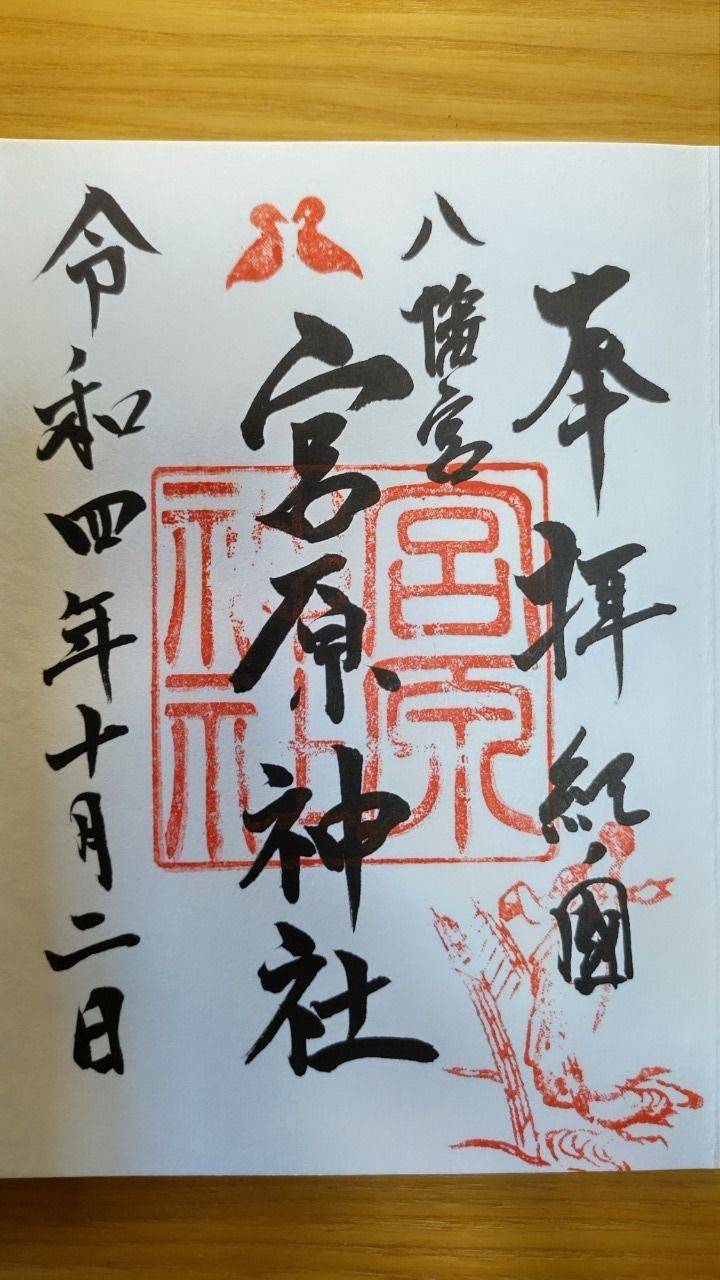 奉拝 紀ノ國
八幡宮
宮原神社
宮原
神社
令和四年十月二日